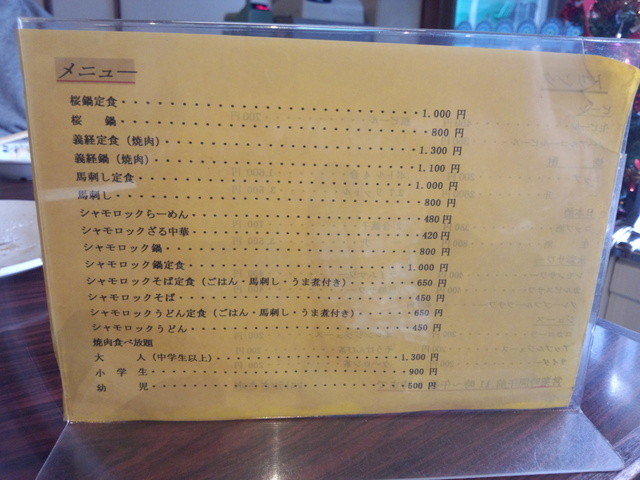 メニュー
桜鍋定食・・・・・・・・・・・・・・・・・・・・・・・・・・1.000 円
桜　鍋・・・・・・・・・・・・・・・・・・・・・・・・・・800 円
義経定食（焼肉）・・・・・・・・・・・・・・・・・・・・・・1.300 円
義経鍋（焼肉）・・・・・・・・・・・・・・・・・・・・・・・1.100 円
馬刺し定食・・・・・・・・・・・・・・・・・・・・・・・・・1.000 円
馬刺し・・・・・・・・・・・・・・・・・・・・・・・・・・・800 円
シャモロックらーめん・・・・・・・・・・・・・・・・・・・・480円
シャモロックざる中華・・・・・・・・・・・・・・・・・・・・420円
シャモロック鍋・・・・・・・・・・・・・・・・・・・・・・・800 円
シャモロック鍋定食・・・・・・・・・・・・・・・・・・・・・1.000 円
シャモロックそば定食（ごはん・馬刺し・うま煮付き）・・・・・・650 円
シャモロックそば・・・・・・・・・・・・・・・・・・・・・・450 円
シャモロックうどん定食（ごはん・馬刺し・うま煮付き）・・・・・650 円
シャモロックうどん・・・・・・・・・・・・・・・・・・・・・450 円
焼肉食べ放題
大　人（中学生以上）・・・・・・・・・・・・・・・・・・・・1.300 円
小 学 生・・・・・・・・・・・・・・・・・・・・・・・・・900 円
幼　児・・・・・・・・・・・・・・・・・・・・・・・・・・500 円